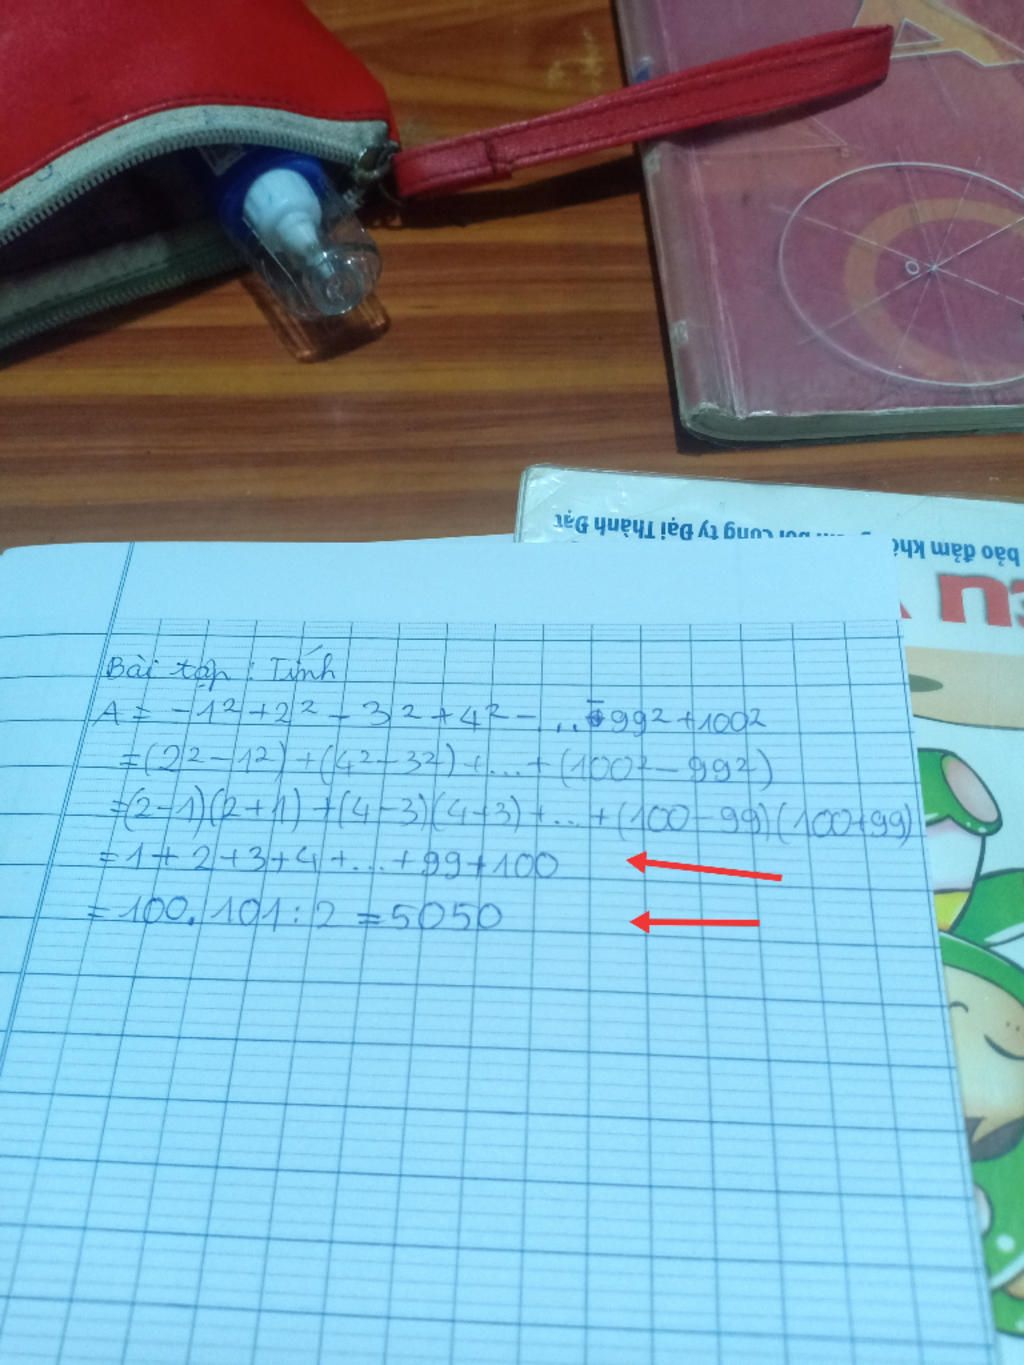 O
bảo đảm khô
bởi công ty Đại Thành Đạt
Bài tập: Tính
A = -1² + 2² - 3² + 4² - ... - 99² + 100²
= (2² - 1²) + (4² - 3²) + ... + (100² - 99²)
= (2-1)(2+1) + (4-3)(4+3) + ... + (100-99)(100+99)
= 1 + 2 + 3 + 4 + ... + 99 + 100
= 100 . 101 : 2 = 5050